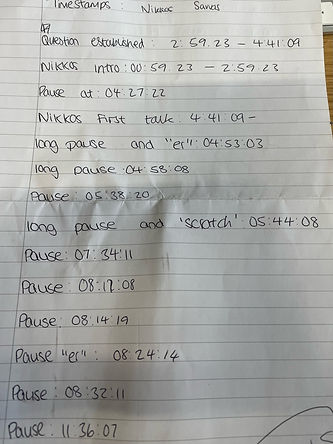 Timestamps: Nikkos Sanas
Question established: 2:59.23 - 4:41:09
Nikkos intro: 00:59.23 - 2:59.23
Pause at: 04:27:22
Nikkos First talk: 4:41:09-
long pause and "er": 04:53:03
long pause: 04:58:08
Pause: 05:38.20
long pause and 'scratch': 05:44:08
Pause: 07:34:11
Pause: 08:12:08
Pause: 08:14:19
Pause "er": 08:24:14
Pause: 08:32:11
Pause: 11:36:07